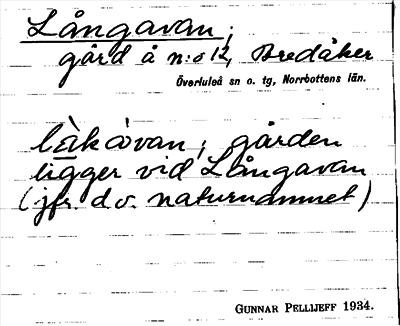 Långavan;
gård å n:o 12, Bredåker
Överluleå sn o. tg, Norrbottens län.
ligger vid Långavan
gården
(jfr. d.o. naturnamnet)
GUNNAR PELLIJEFF 1934.